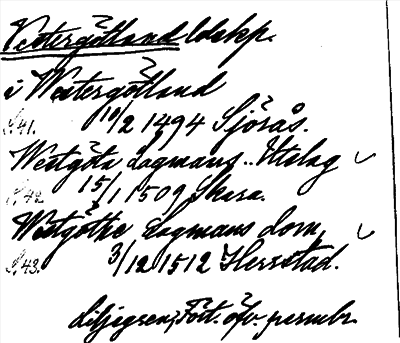 Vestergötland ldskp.
i Westergötland
S.41. 10/2 1494 Sjörås.
Westgöta Lagmans.. Utslag ✓
S.42 15/1 1509 Skara.
Westgöthe Lagmans dom, ✓
S.43. 3/12 1512 Herrstad.
Liljegren, Fört. öfv. permbr.